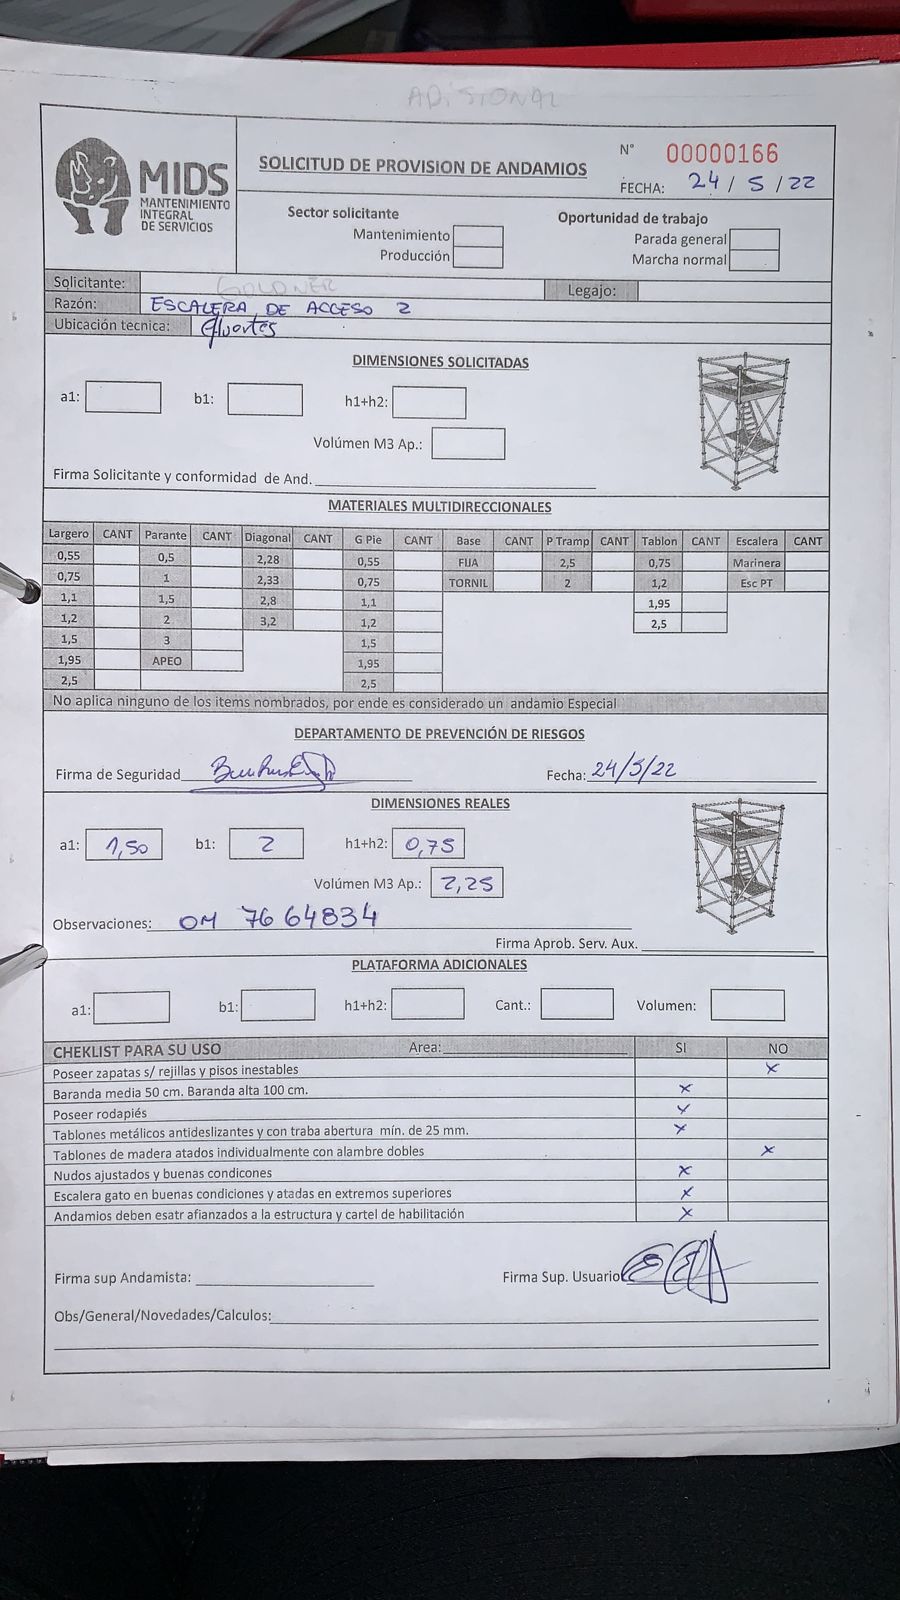 ADISIONAL
MIDS
MANTENIMIENTO
INTEGRAL
DE SERVICIOS
SOLICITUD DE PROVISION DE ANDAMIOS
N° 00000166
FECHA: 24/5/22
Sector solicitante
Mantenimiento
Producción
Oportunidad de trabajo
Parada general
Marcha normal
Solicitante: GOLDNER Legajo:
Razón: ESCALERA DE ACCESO 2
Ubicación tecnica:
DIMENSIONES SOLICITADAS
a1: b1: h1+h2:
Volúmen M3 Ap.:
Firma Solicitante y conformidad de And.
MATERIALES MULTIDIRECCIONALES
Largero CANT Parante CANT Diagonal CANT G Pie CANT Base CANT P Tramp CANT Tablon CANT Escalera CANT
0,55 0,5 2,28 0,55 FIJA 2,5 0,75 Marinera
0,75 1 2,33 0,75 TORNIL 2 1,2 Esc PT
1,1 1,5 2,8 1,1 1,95
1,2 2 3,2 1,2 2,5
1,5 3 1,5
1,95 APEO 1,95
2,5 2,5
No aplica ninguno de los items nombrados, por ende es considerado un andamio Especial
DEPARTAMENTO DE PREVENCIÓN DE RIESGOS
Firma de Seguridad Fecha: 24/5/22
DIMENSIONES REALES
a1: 1,50 b1: 2 h1+h2: 0,75
Volúmen M3 Ap.: 2,25
Observaciones: OM 7664834
Firma Aprob. Serv. Aux.
PLATAFORMA ADICIONALES
a1: b1: h1+h2: Cant.: Volumen:
CHEKLIST PARA SU USO Area: SI NO
Poseer zapatas s/ rejillas y pisos inestables x
Baranda media 50 cm. Baranda alta 100 cm. x
Poseer rodapiés x
Tablones metálicos antideslizantes y con traba abertura mín. de 25 mm. x
Tablones de madera atados individualmente con alambre dobles x
Nudos ajustados y buenas condicones x
Escalera gato en buenas condiciones y atadas en extremos superiores x
Andamios deben esatr afianzados a la estructura y cartel de habilitación x
Firma sup Andamista: Firma Sup. Usuario
Obs/General/Novedades/Calculos: